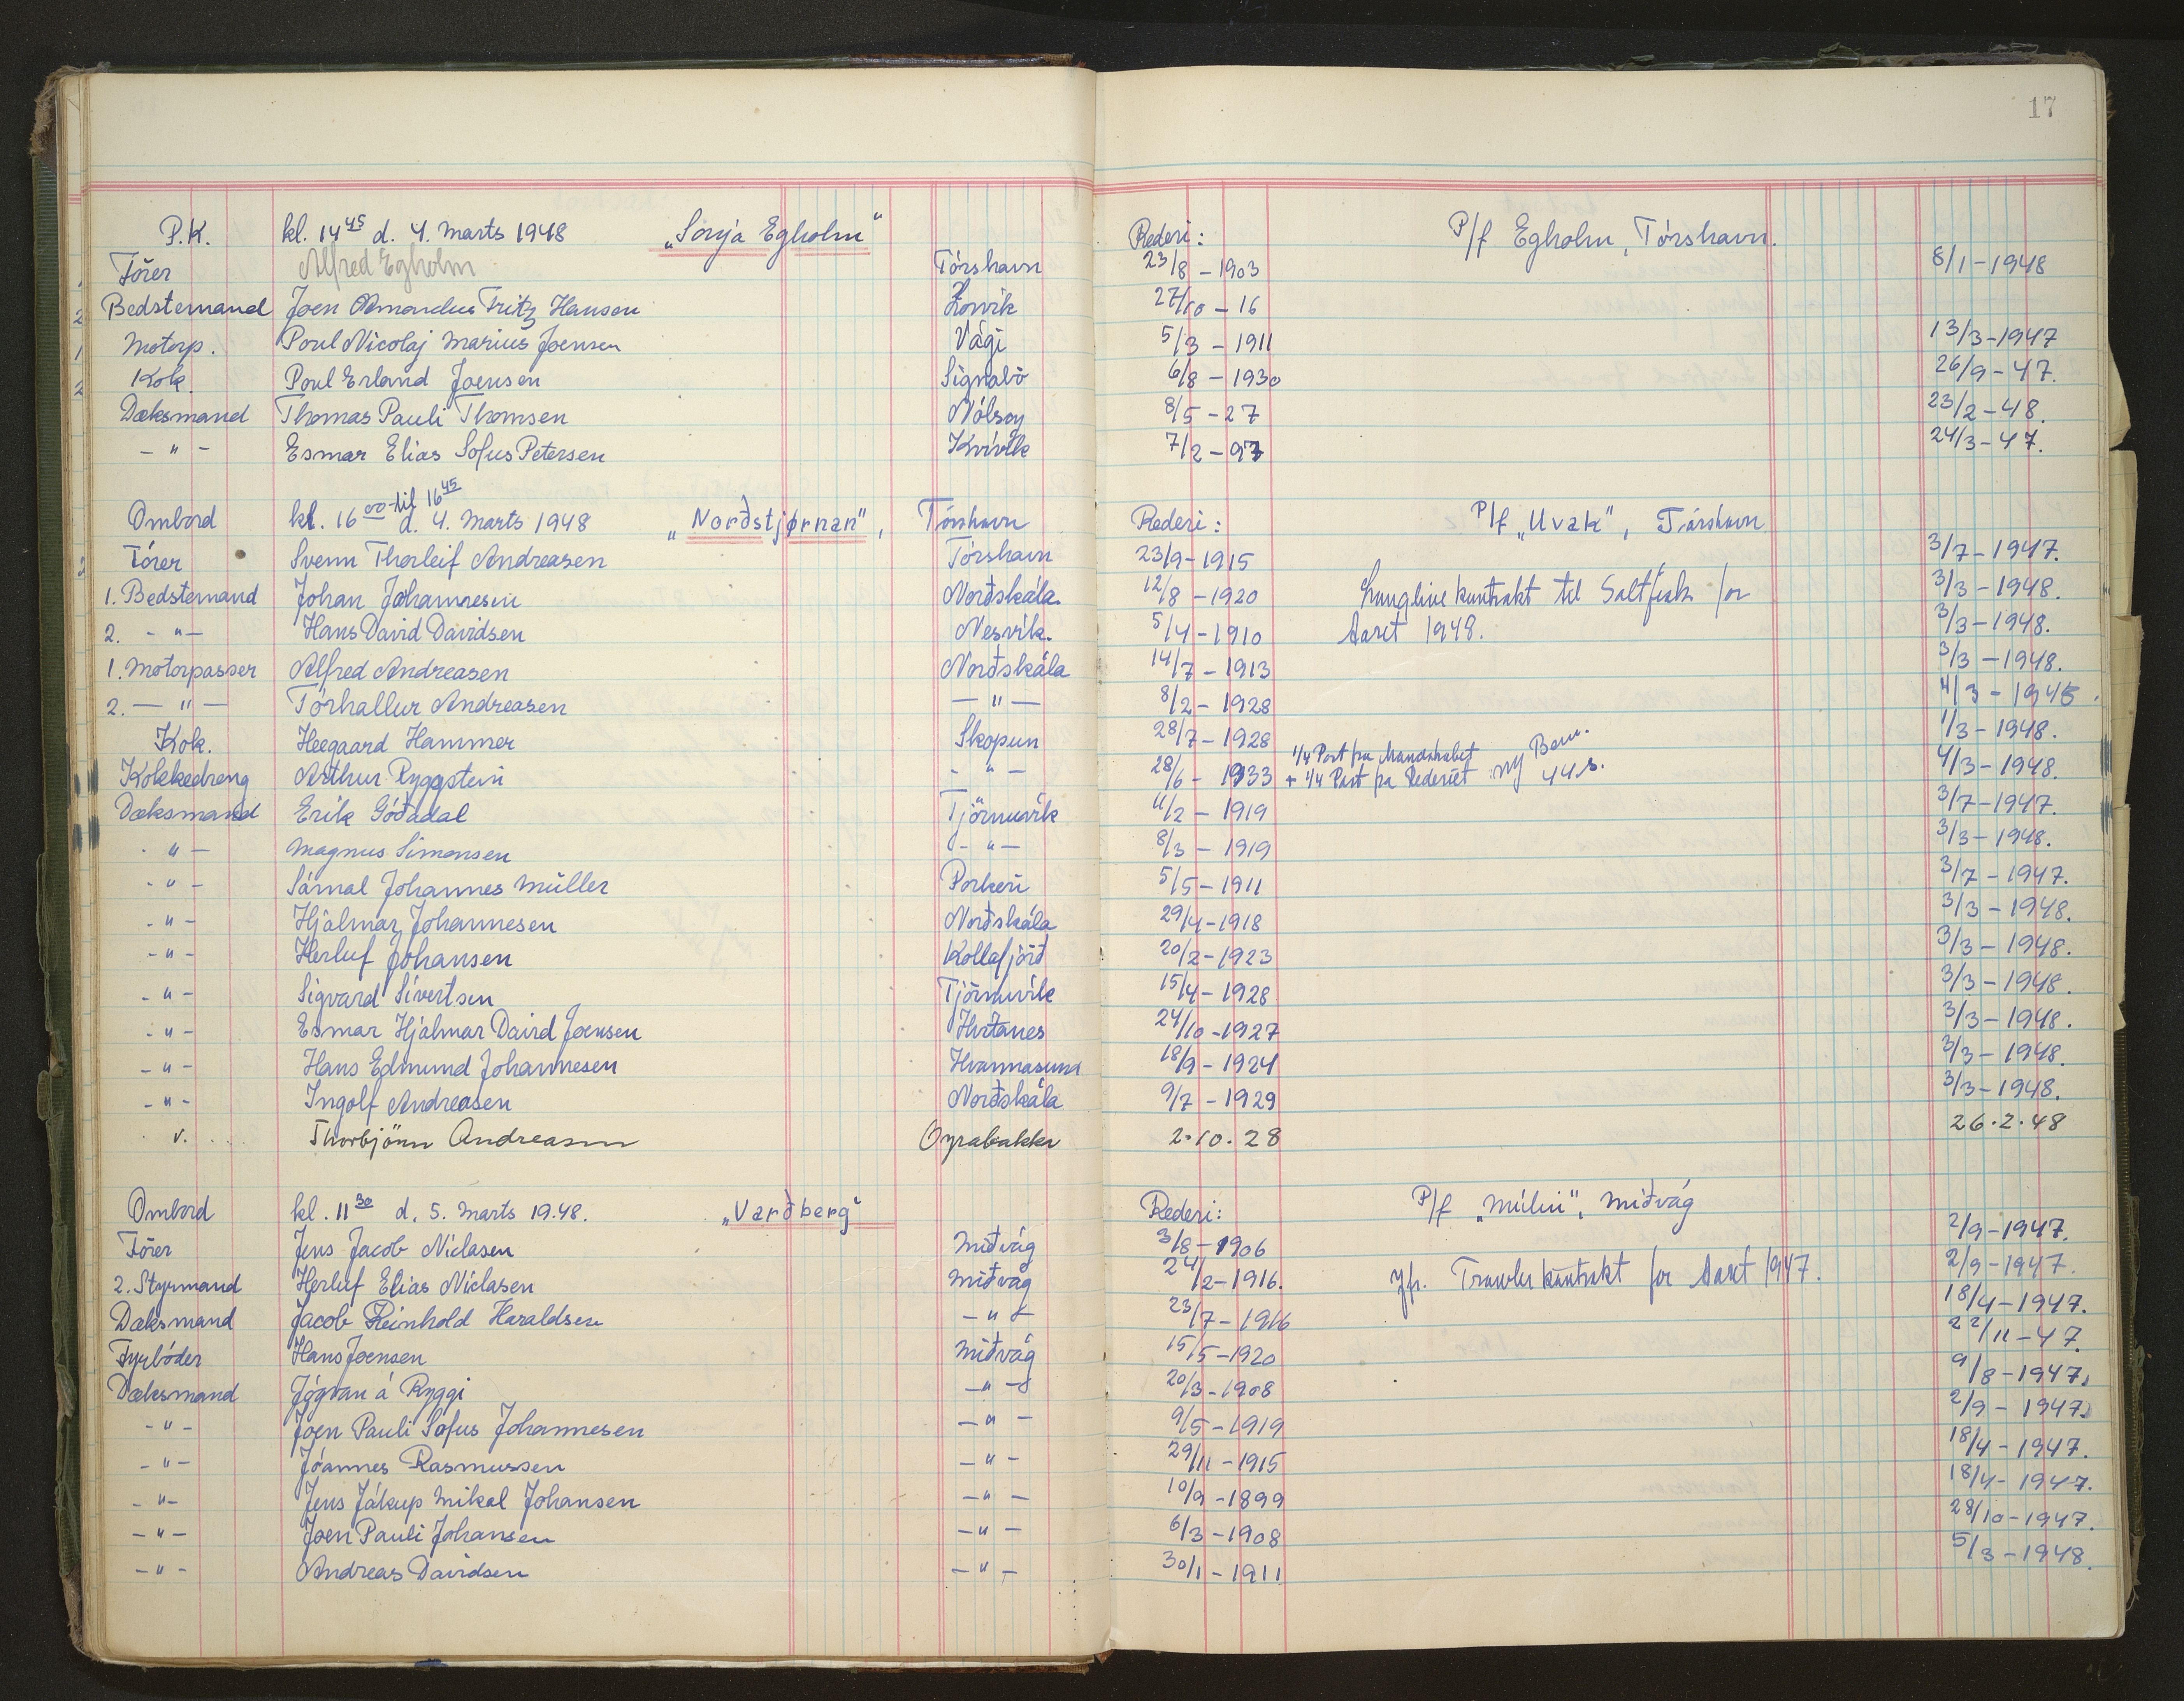 17
P.K. kl. 14 45 d. 4. Marts 1948 „Sonja Egholm" Rederi: P/f Egholm, Tórshavn.
Förer Alfred Egholm Tórshavn 23/8 - 1903 8/1 - 1948
2 Bedstemand Joen Amandus Fritz Hansen 27/10 - 16
1 Motorp. Poul Nicolaj Marius Joensen Vági 5/3 - 1911 13/3 - 1947
2 Kok. Poul Erland Joensen Signabö 6/8 - 1930 26/9 - 47.
Dæksmand Thomas Pauli Thomsen Nólsoy 8/5 - 27 23/2 - 48.
- " - Esmar Elias Sofus Petersen Kvívík 7/2 - 97 24/3 - 47.
Ombord kl. 16 00 til 16 45 d. 4. Marts 1948 „Norðstjørnan", Tórshavn Rederi: P/f „Uvak", Tórshavn
Förer Svenn Thorleif Andreasen Tórshavn 23/9 - 1915 3/7 - 1947.
1. Bedstemand Johan Johannesen Norðskála. 12/8 - 1920 Langline kontrakt til Saltfisk for 3/3 - 1948.
2. - " - Hans David Davidsen Nesvík. 5/4 - 1910 Aaret 1948. 3/3 - 1948.
1. Motorpasser Alfred Andreasen Norðskála 14/7 - 1913 3/3 - 1948.
2. - " - Tórhallur Andreasen - " - 8/2 - 1928 4/3 - 1948.
Kok. Heegaard Hammer Skopun 28/7 - 1928 1/4 Part fra Mandskabet 1/3 - 1948.
Kokkedreng Arthur Ryggstein - " - 28/6 - 1933 + 1/4 Part fra Rederiet ny Bem. 44 s. 4/3 - 1948.
Dæksmand Erik Góðadal Tjörnuvík 11/2 - 1919 3/7 - 1947.
- " - Magnus Simonsen - " - 8/3 - 1919 3/3 - 1948.
- " - Sámal Johannes Müller Porkeri 5/5 - 1911 3/7 - 1947.
- " - Hjálmar Johannesen Norðskála 29/4 - 1918 3/3 - 1948.
- " - Herluf Johansen Kollafjörð 20/2 - 1923 3/3 - 1948.
- " - Sigvard Sivertsen Tjörnuvík 15/4 - 1928 3/3 - 1948.
- " - Esmar Hjálmar David Joensen Hvítanes 24/10 - 1927 3/3 - 1948.
- " - Hans Edmund Johannesen Hvannasund 18/9 - 1924 3/3 - 1948.
- " - Ingolf Andreasen Norðskála 9/7 - 1929 3/3 - 1948.
v. Thorbjönn Andreasen Oyrabakki 2.10.28 26.2.48
Ombord kl. 11 30 d. 5. Marts 1948. „Varðberg" Rederi: P/f „Múlin", Miðvág
Förer Jens Jacob Niclasen Miðvág 3/8 - 1906 2/9 - 1947.
2. Styrmand Herluf Elias Niclasen Miðvág 24/2 - 1916. Jfr. Trawler kontrakt for Aaret 1947. 2/9 - 1947.
Dæksmand Jacob Reinhold Haraldsen - " - 23/7 - 1916 18/4 - 1947.
Fyrböder Hans Joensen Miðvág 15/5 - 1920 22/11 - 47.
Dæksmand Jógvan á Ryggi - " - 20/3 - 1908 9/8 - 1947.
- " - Joen Pauli Sofus Johannesen - " - 9/5 - 1919 2/9 - 1947.
- " - Jóannes Rasmussen - " - 29/11 - 1915 18/4 - 1947.
- " - Jens Jákup Mikal Johansen - " - 10/9 - 1899 18/4 - 1947.
- " - Joen Pauli Johansen - " - 6/3 - 1908 28/10 - 1947.
- " - Andreas Davidsen - " - 30/1 - 1911 5/3 - 1948.